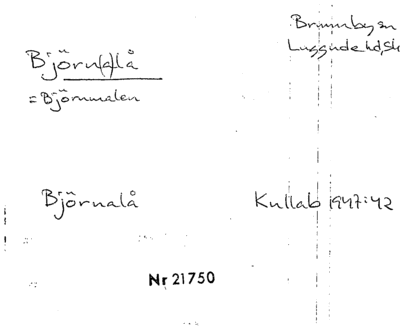 Brunnby sn
Luggude hd, Sk
Björn(a)lå
= Björnmalen
Björnalå
Kullab 1947:42
Nr 21750